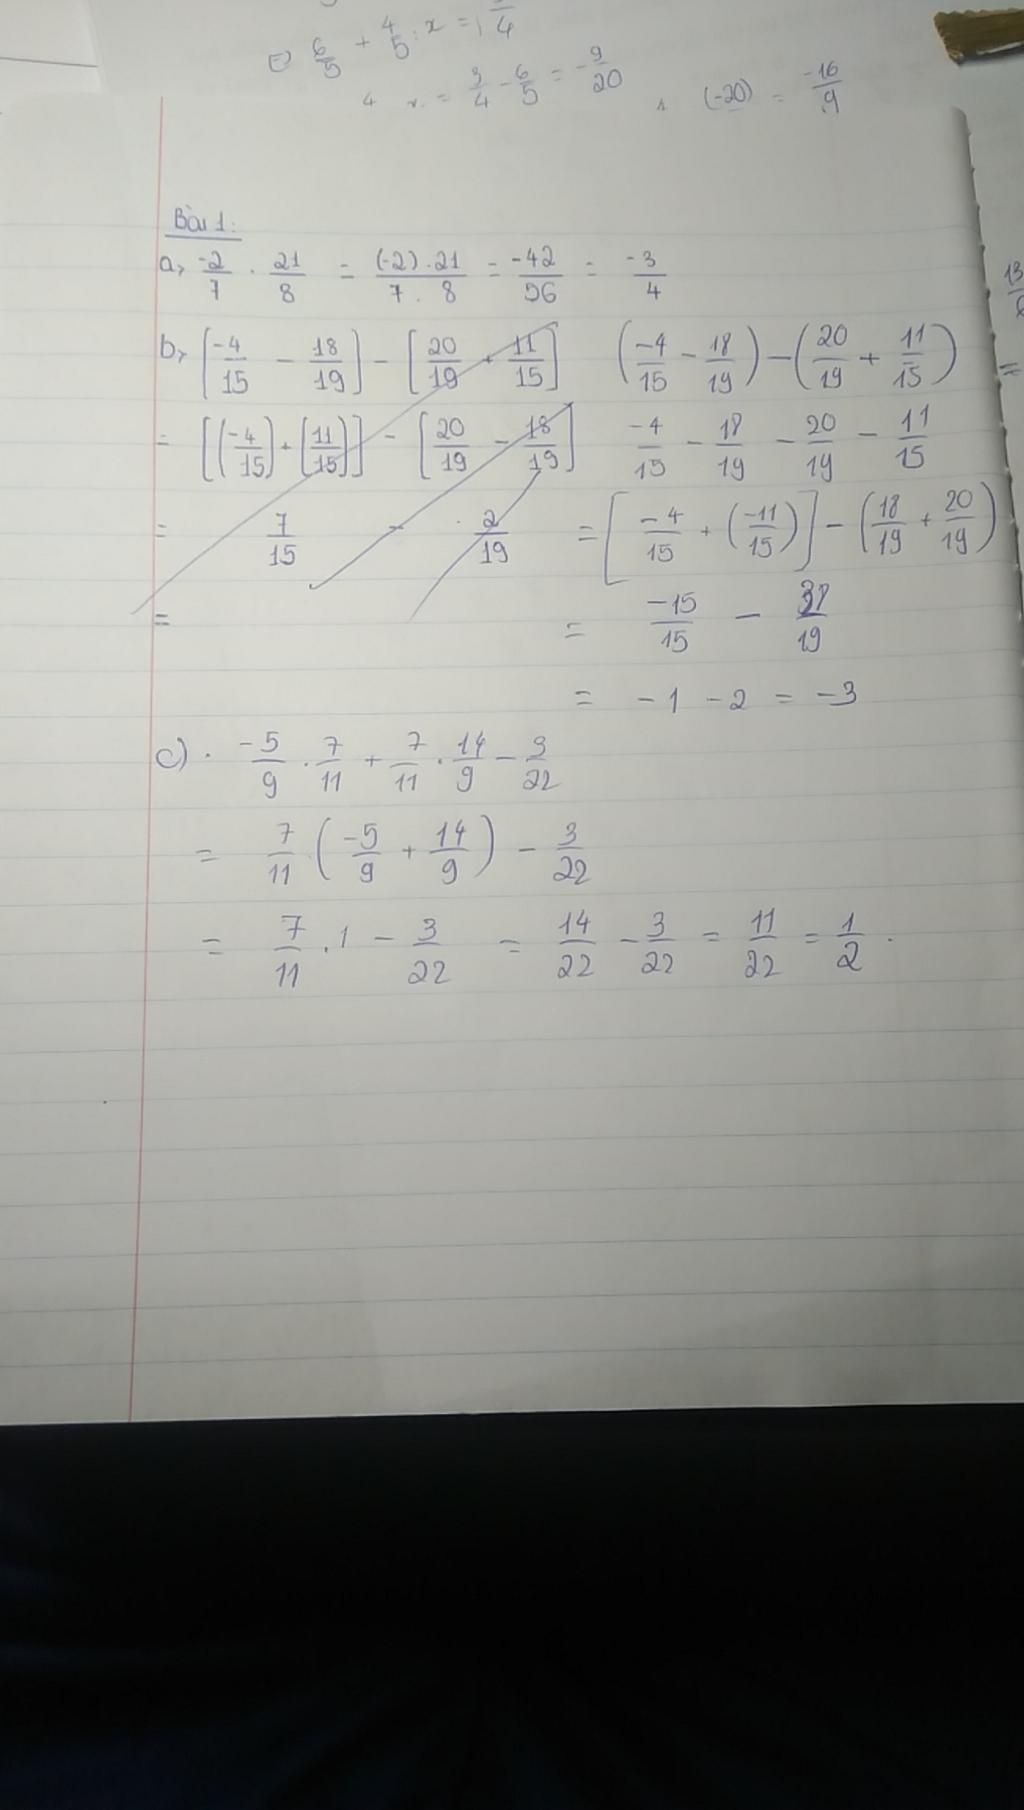 ⇔ 6/5 + 4/5 : x =
x = 3/4 - 6/5 = -9/20
(-20) = -16/9
Bài 1:
a, -2/7 . 21/8 = (-2).21/7.8 = -42/56 = -3/4
b, [-4/15 - 18/19] - [20/19 + 11/15] (-4/15 - 18/19) - (20/19 + 11/15)
= [(-4/15) + (11/15)] - [20/19 - 18/19] -4/15 - 18/19 - 20/19 - 11/15
= 7/15 - 2/19 = [-4/15 + (-11/15)] - (18/19 + 20/19)
= = -15/15 - 38/19
= -1 - 2 = -3
c) -5/9 . 7/11 + 7/11 . 14/9 - 3/22
= 7/11 . (-5/9 + 14/9) - 3/22
= 7/11 . 1 - 3/22 = 14/22 - 3/22 = 11/22 = 1/2 .